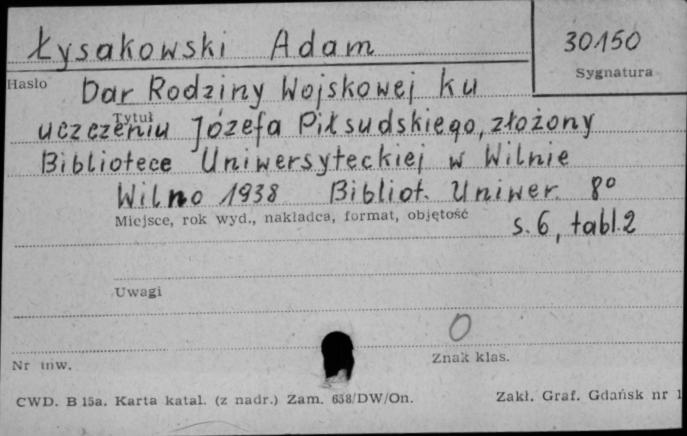 Łysakowski Adam
30150
Hasło
Sygnatura
Dar Rodziny Wojskowej ku
Tytuł
uczczeniu Józefa Piłsudskiego, złożony
Bibliotece Uniwersyteckiej w Wilnie
Wilno 1938 Bibliot. Uniwer. 8º
Miejsce, rok wyd., nakładca, format, objętość
s. 6, tabl. 2
Uwagi
0
Nr inw.
Znak klas.
CWD. B 15a. Karta katal. (z nadr.) Zam. 658/DW/On.
Zakł. Graf. Gdańsk nr 1